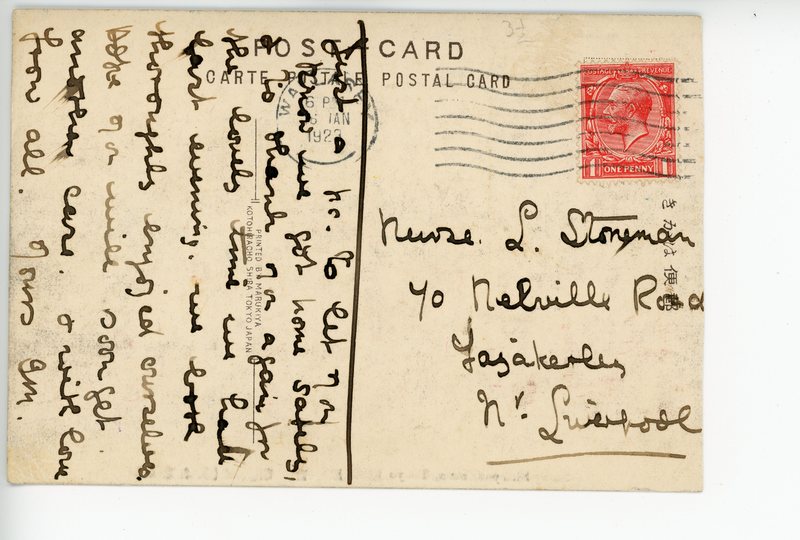 3½
POST CARD
CARTE POSTALE POSTAL CARD
6 PM
JAN
1923
POSTAGE REVENUE
ONE PENNY
きがは便郵
PRINTED BY MARUKIYA
KOTOHIRACHO SHIBA TOKYO JAPAN
Just a p.c. to let you
know we got home safely,
& to thank you again for
the lovely time we had
last evening. we both
thoroughly enjoyed ourselves.
Hope you will soon get
another case. & with love
from all. Yours Em.
Nurse. L. Stoneman
70 Melville Road
Nr. Liverpool